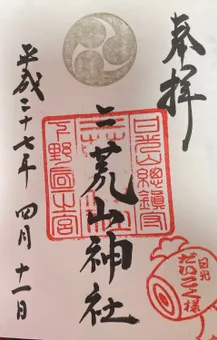 奉拝
日光山總鎮守
二荒山神社
下野国一宮
日光
だいこく様
平成二十七年 四月 十一日